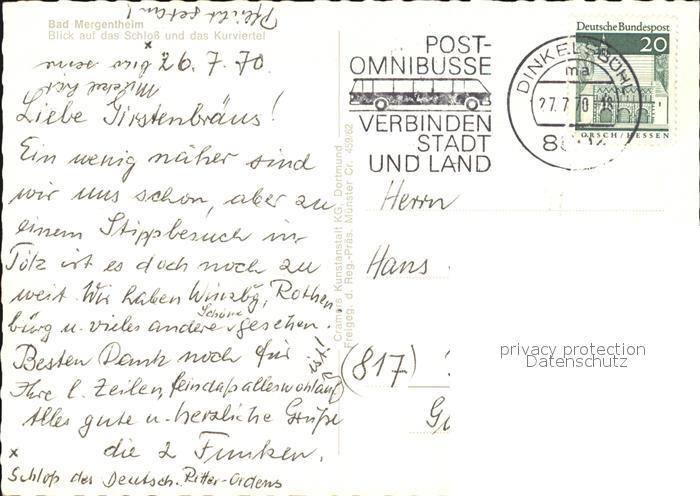 Bad Mergentheim
Blick auf das Schloß und das Kurviertel
26. 7. 70
Liebe Girstenbräus!
Ein wenig näher sind
wir uns schon, aber zu
einem Stippbesuch in
Tölz ist es doch noch zu
weit. Wir haben Würzbg, Rothen
burg u. vieles andere Schöne gesehen.
Besten Dank noch für
Ihre l. Zeilen, fein daß alles wohlauf
ist!
Alles gute u. herzliche Grüße
die 2 Funken.
x
Schloß des Deutsch. Ritter-Ordens
Cramers Kunstanstalt KG, Dortmund
Freigeg. d. Reg.-Präs. Münster Cr. 459/62
POST-
OMNIBUSSE
VERBINDEN
STADT
UND LAND
DINKELSBÜHL
ma
27.7.70-18
Deutsche Bundespost
20
LORSCH/HESSEN
Herrn
Hans
(817)
privacy protection
Datenschutz